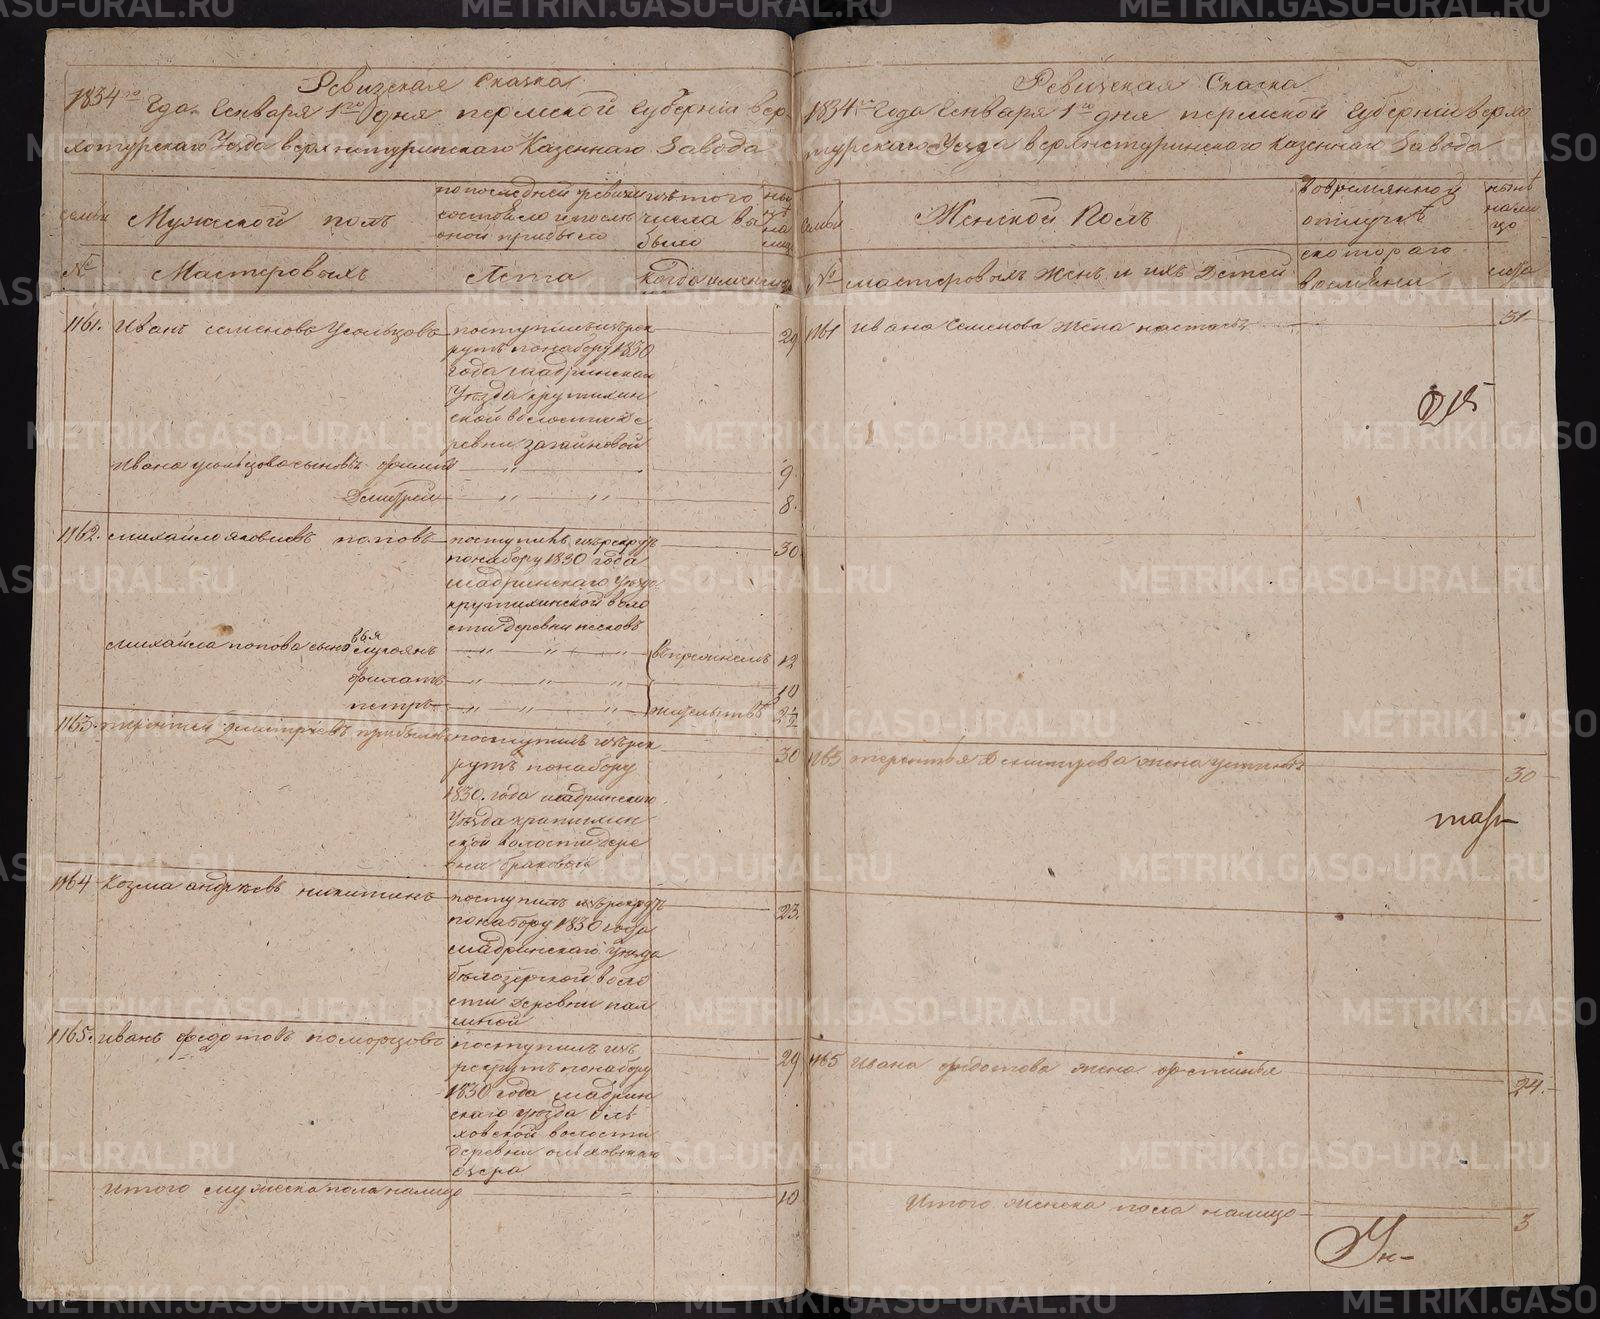 Ревизская Сказка
1834го Года Генваря 1го дня пермской Губернiи Вер-
хотурскаго Уезда верхнетуринскаго Казеннаго Завода
семьи
Мужеской полъ
по последней ревизiи
состояло и после
оной прибыло
изъ того
числа вы
было
ныне
на
лицо
№
Мастеровыхъ
Лета
когда именно
1161. Иванъ семеновъ Усольцовъ
поступилъ изъ рек
рутъ по набору 1830
года шадринскаго
Уезда крутихин
ской волости де
ревни загайновой
29
Ивана усольцова сыновья филипъ
9
Дмитрей
8.
1162. михайло яковлевъ поповъ
поступилъ изъ рекрутъ
по набору 1830 года
шадринскаго уезда
крутихинской воло
сти деревни песковъ
30
михайла попова сыновья лукоянъ
въ прежнемъ
12
филатъ
10
петръ
жительстве
2½
1163. терентей дмитрiевъ
поступилъ изъ рек
рутъ по набору
1830. года шадринскаго
Уезда
ской волости дере
вни
30
1164 Козма андреевъ никитинъ
поступилъ изъ рекрутъ
по набору 1830 года
шадринскаго уезда
белозерской воло
сти деревни
23.
1165. иванъ федотовъ поморцовъ
поступилъ изъ
рекрутъ по набору
1830 года шадрин
скаго уезда оль
ховской волости
деревни ольховскаго
озера
29
Итого мужеска пола налицо
10
Ревизская Сказка
1834го Года Генваря 1го дня пермской Губернiи верхо
турскаго Уезда верхнетуринскаго Казеннаго Завода
семьи
Женской Полъ
во временной
отлучке
ныне
нали
цо
№
мастеровыхъ женъ и ихъ Детей
с котораго
времяни
лета
1161 ивана Семенова жена настасья
31
1163 терентья Дмитриева жена устинья
30
1165 Ивана федотова жена фетинья
24.
Итого женска пола налицо
3
METRIKI.GASO-URAL.RU